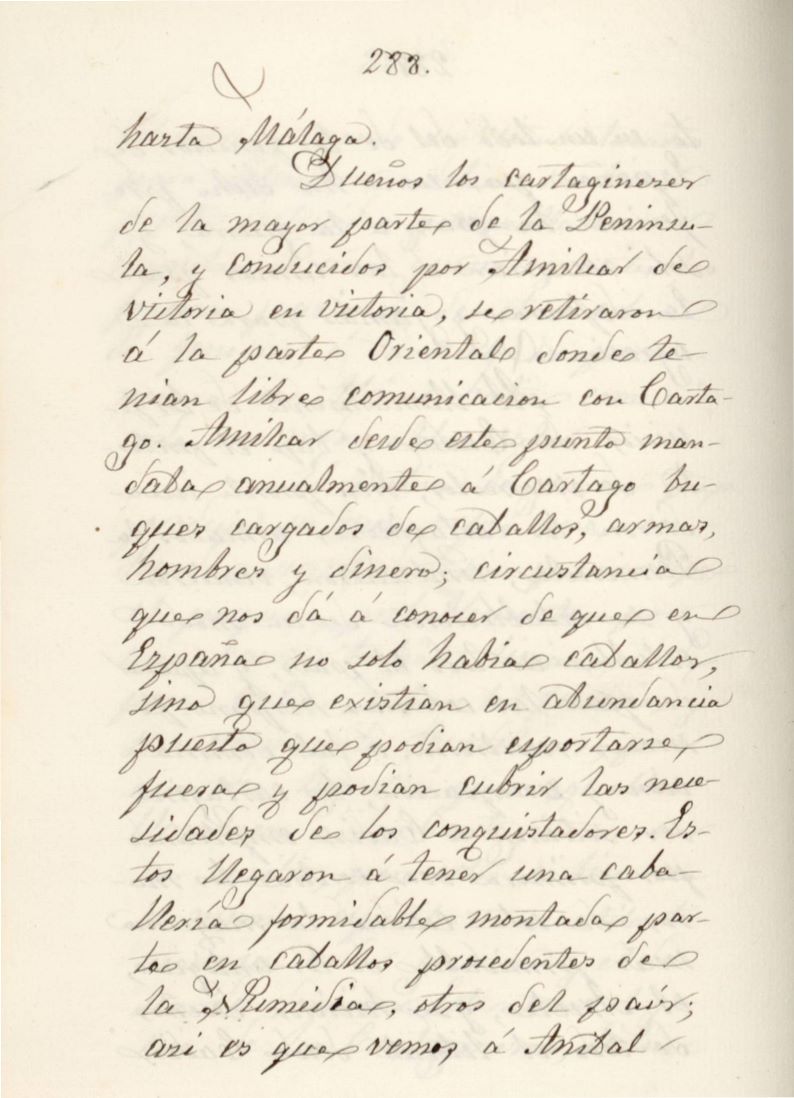 288.
hasta Málaga.
Dueños los cartagineses
de la mayor parte de la Peninsu-
la, y conducidos por Amilcar de
victoria en victoria, se retiraron
á la parte Oriental donde te-
nian libre comunicacion con Carta-
go. Amilcar desde este punto man-
daba anualmente á Cartago bu-
ques cargados de caballos, armas,
hombres y dinero; circustancia
que nos dá á conocer de que en
España no solo habia caballos,
sino que existian en abundancia
puesto que podian esportarse
fuera y podian cubrir las nece-
sidades de los conquistadores. Es-
tos llegaron á tener una caba-
llería formidable montada par-
te en caballos procedentes de
la Numidia, otros del país;
asi es que vemos á Anibal